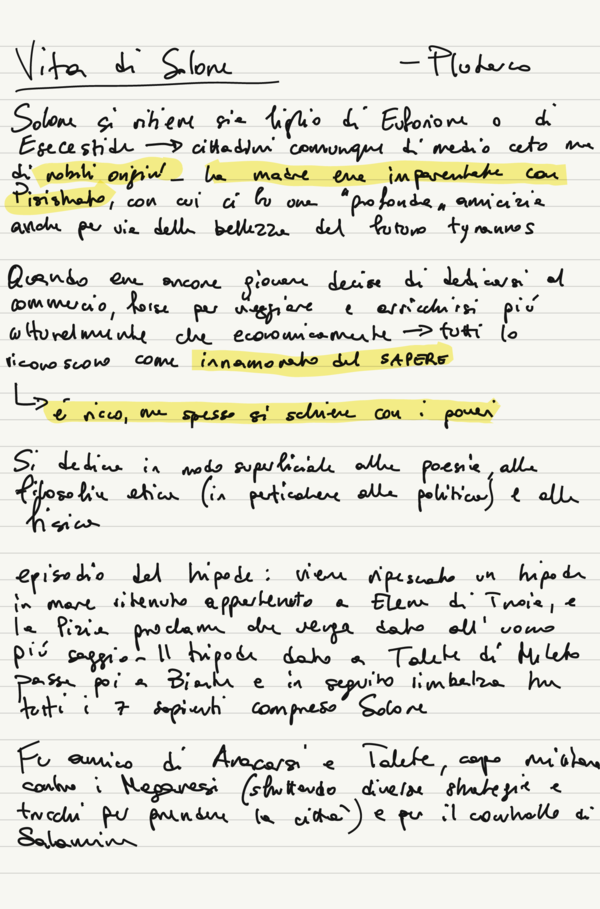 Vita di Solone – Plutarco
Solone si ritiene sia figlio di Euforione o di
Esecestide → cittadini comunque di medio ceto ma
di nobili origini – la madre era imparentata con
Pisistrato, con cui ci fu una "profonda" amicizia
anche per via della bellezza del futuro tyrannos
Quando era ancora giovane decise di dedicarsi al
commercio, forse per viaggiare e arricchirsi più
culturalmente che economicamente → tutti lo
riconoscono come innamorato del SAPERE
↳ è ricco, ma spesso si schiera con i poveri
Si dedica in modo superficiale alla poesia, alla
filosofia etica (in particolare alla politica) e alla
fisica
episodio del tripode: viene ripescato un tripode
in mare ritenuto appartenuto a Elena di Troia, e
la Pizia proclama che venga dato all'uomo
più saggio – Il tripode dato a Talete di Mileto
passa poi a Biante e in seguito rimbalza tra
tutti i 7 sapienti compreso Solone
Fu amico di Anacarsi e Talete, capo militare
contro i Megaresi (sfruttando diverse strategie e
trucchi per prendere la città) e per il controllo di
Salamina